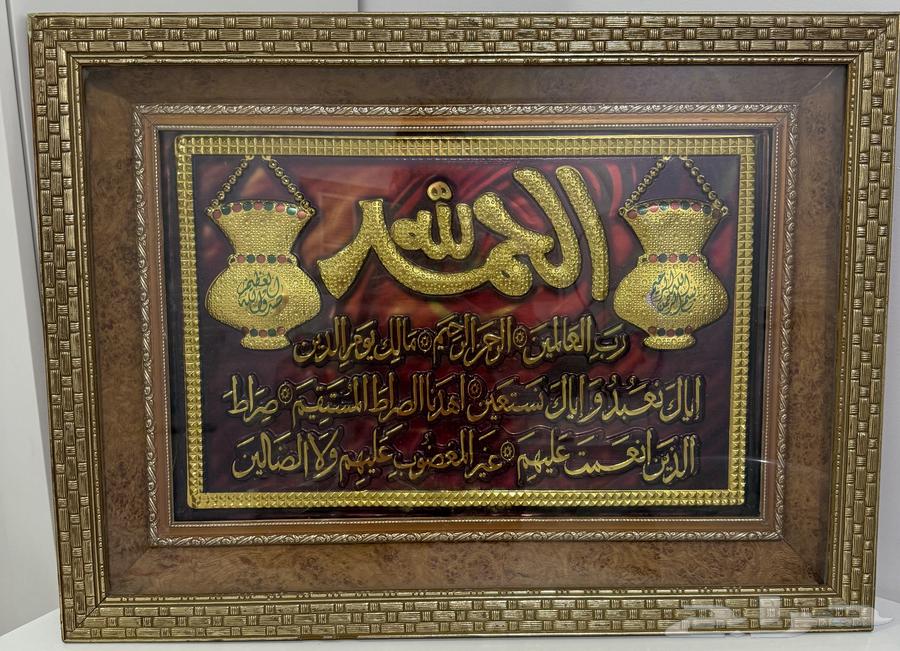 بسم الله الرحمن الرحيم
الحمد لله
رب العالمين الرحمن الرحيم مالك يوم الدين
اياك نعبد و اياك نستعين اهدنا الصراط المستقيم صراط
الذين انعمت عليهم غير المغضوب عليهم ولا الضالين
صدق الله العظيم
حراج